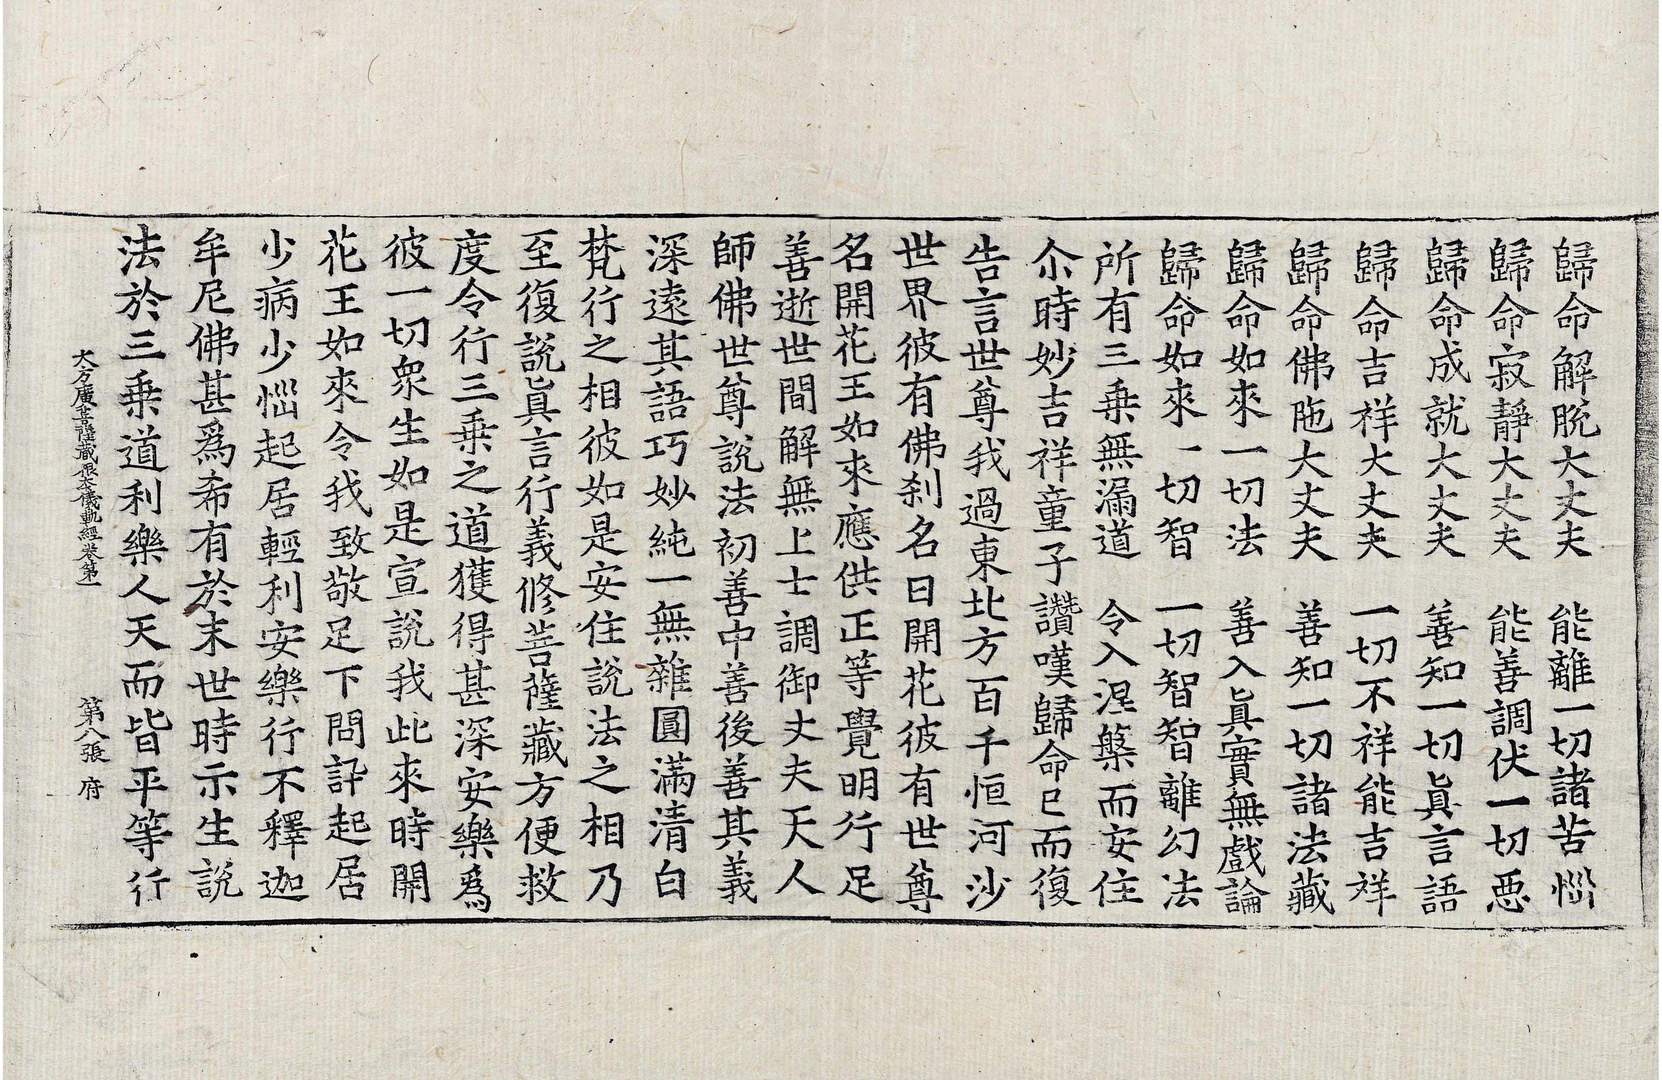 歸命解脫大丈夫　能離一切諸苦惱
歸命寂靜大丈夫　能善調伏一切惡
歸命成就大丈夫　善知一切眞言語
歸命吉祥大丈夫　一切不祥能吉祥
歸命佛陁大丈夫　善知一切諸法藏
歸命如來一切法　善入眞實無戲論
歸命如來一切智　一切智智離幻法
所有三乗無漏道　令入涅槃而安住
尒時妙吉祥童子讚嘆歸命已而復
告言世尊我過東北方百千恒河沙
世界彼有佛刹名曰開花彼有世尊
名開花王如來應供正等覺明行足
善逝世間解無上士調御丈夫天人
師佛世尊說法初善中善後善其義
深遠其語巧妙純一無雜圓滿清白
梵行之相彼如是安住說法之相乃
至復說眞言行義修菩薩藏方便救
度令行三乗之道獲得甚深安樂爲
彼一切衆生如是宣說我此來時開
花王如來令我致敬足下問訊起居
少病少惱起居輕利安樂行不釋迦
牟尼佛甚爲希有於末世時示生說
法於三乗道利樂人天而皆平等行
大方廣菩薩藏根本儀軌經卷第一　第八張　府